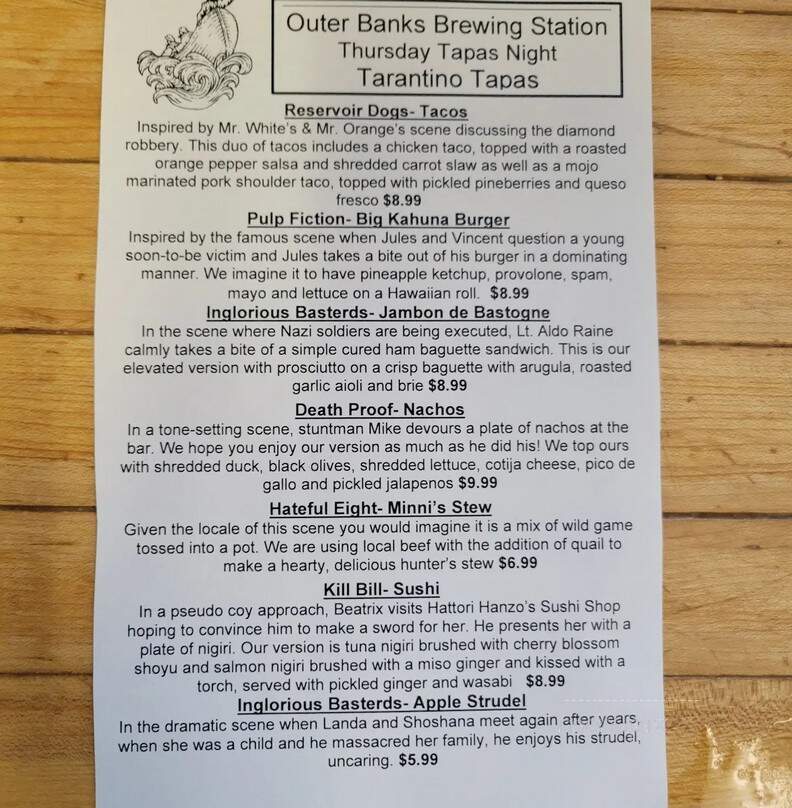 Outer Banks Brewing Station
Thursday Tapas Night
Tarantino Tapas
Reservoir Dogs- Tacos
Inspired by Mr. White's & Mr. Orange's scene discussing the diamond
robbery. This duo of tacos includes a chicken taco, topped with a roasted
orange pepper salsa and shredded carrot slaw as well as a mojo
marinated pork shoulder taco, topped with pickled pineberries and queso
fresco $8.99
Pulp Fiction- Big Kahuna Burger
Inspired by the famous scene when Jules and Vincent question a young
soon-to-be victim and Jules takes a bite out of his burger in a dominating
manner. We imagine it to have pineapple ketchup, provolone, spam,
mayo and lettuce on a Hawaiian roll. $8.99
Inglorious Basterds- Jambon de Bastogne
In the scene where Nazi soldiers are being executed, Lt. Aldo Raine
calmly takes a bite of a simple cured ham baguette sandwich. This is our
elevated version with prosciutto on a crisp baguette with arugula, roasted
garlic aioli and brie $8.99
Death Proof- Nachos
In a tone-setting scene, stuntman Mike devours a plate of nachos at the
bar. We hope you enjoy our version as much as he did his! We top ours
with shredded duck, black olives, shredded lettuce, cotija cheese, pico de
gallo and pickled jalapenos $9.99
Hateful Eight- Minni's Stew
Given the locale of this scene you would imagine it is a mix of wild game
tossed into a pot. We are using local beef with the addition of quail to
make a hearty, delicious hunter's stew $6.99
Kill Bill- Sushi
In a pseudo coy approach, Beatrix visits Hattori Hanzo's Sushi Shop
hoping to convince him to make a sword for her. He presents her with a
plate of nigiri. Our version is tuna nigiri brushed with cherry blossom
shoyu and salmon nigiri brushed with a miso ginger and kissed with a
torch, served with pickled ginger and wasabi $8.99
Inglorious Basterds- Apple Strudel
In the dramatic scene when Landa and Shoshana meet again after years,
when she was a child and he massacred her family, he enjoys his strudel,
uncaring. $5.99